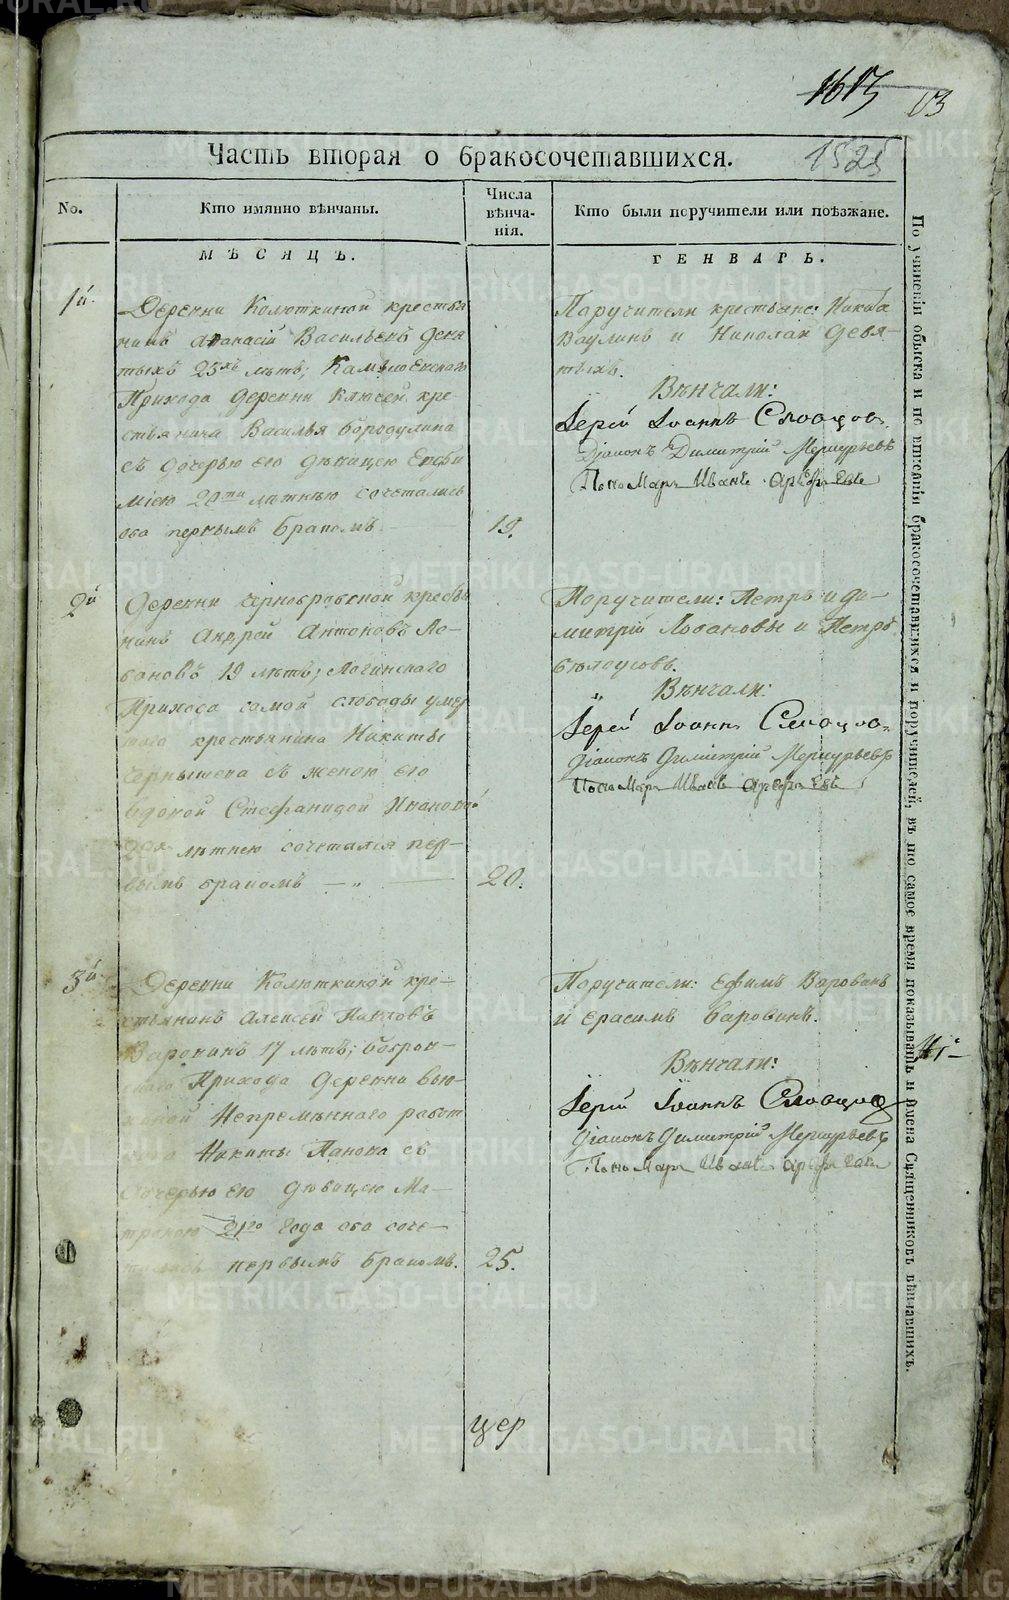 1613
13
1525
Часть вторая о бракосочетавшихся.
No.
Кто имянно вѣнчаны.
Числа
вѣнча-
нія.
Кто были поручители или поѣзжане.
МѢСЯЦЪ.
ГЕНВАРЬ.
1й
Деревни Колюткиной крестья
нинъ Аѳанасій Васильевъ Девя
тыхъ 25хъ лѣтъ;
Прихода деревни Ключей кре-
стьянина Василья Бородулина
съ дочерью его дѣвицею Евѳи
міею 20ти лѣтнею сочетались
оба первымъ бракомъ
19.
Поручители крестьяне: Никита
Ваулинъ и Николай Девя-
тыхъ.
Вѣнчали:
Іерей Іоаннъ Словцовъ
Діаконъ Димитрій Меркурьевъ
Пономарь Иванъ Арефьевъ
2й
Деревни Чернобровской крестья
нинъ Андрей Антоновъ Ло-
бановъ 19 лѣтъ; Логинскаго
Прихода самой слободы умер
шаго крестьянина Никиты
Чернышева съ женою его
вдовой Стефанидой Ивановой
лѣтнею сочетался пер-
вымъ бракомъ
20.
Поручители: Петръ и Ди-
митрій Лобановы и Петръ
Бѣлоусовъ.
Вѣнчали:
Іерей Іоаннъ Словцовъ
Діаконъ Димитрій Меркурьевъ
Пономарь Иванъ Арефьевъ
3й
Деревни Колюткиной кре-
стьянинъ Алексей Павловъ
Варовинъ 17 лѣтъ; Боров-
скаго Прихода деревни
Непремѣннаго работ
ника Никиты Панова съ
дочерью его дѣвицею Ма-
троною 21го года оба соче-
тались первымъ бракомъ.
25.
Поручители: Ефимъ Варовинъ
и Ерасимъ Варовинъ.
Вѣнчали:
Іерей Іоаннъ Словцовъ
Діаконъ Димитрій Меркурьевъ
Пономарь Иванъ Арефьевъ
цер
По учиненіи обыска и по вписаніи бракосочетавшихся и поручителей, въ то самое время показывать и имена Священниковъ вѣнчавшихъ.
METRIKI.GASO-URAL.RU